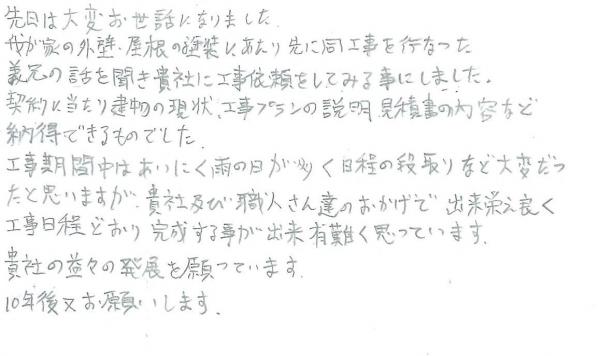 先日は大変お世話になりました.
我が家の外壁・屋根の塗装にあたり先に同工事を行なった
義兄の話を聞き貴社に工事依頼をしてみる事にしました.
契約に当たり建物の現状、工事プランの説明 見積書の内容など
納得できるものでした.
工事期間中はあいにく雨の日が多く日程の段取りなど大変だっ
たと思いますが、貴社及び職人さん達のおかげで出来栄え良く
工事日程どおり完成する事が出来有難く思っています.
貴社の益々の発展を願っています.
10年後又お願いします.